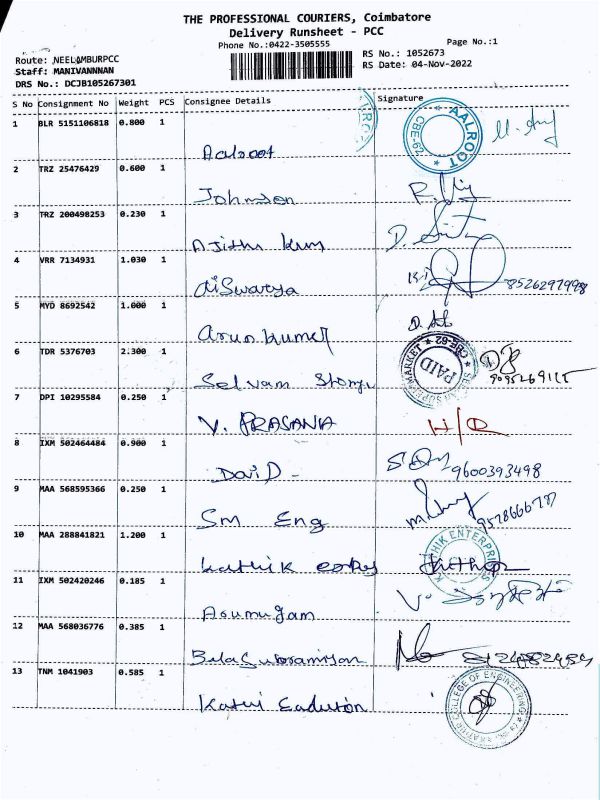 THE PROFESSIONAL COURIERS, Coimbatore
Delivery Runsheet - PCC
Phone No.:0422-3505555
Page No.:1
Route: NEELAMBURPCC
RS No.: 1052673
Staff: MANIVANNNAN
RS Date: 04-Nov-2022
DRS No.: DCJB105267301
S No Consignment No Weight PCS Consignee Details Signature
1 BLR 5151106818 0.800 1
Aalroot
AALROOT CBE-62
2 TRZ 25476429 0.600 1
Johnson
3 TRZ 200498253 0.230 1
Ajith kum
4 VRR 7134931 1.030 1
aiswarya
8526297998
5 MYD 8692542 1.000 1
arun kumer
6 TDR 5376703 2.300 1
Selvam
PAID CBE-62
7 DPI 10295584 0.250 1
V. PRASANA H/R
8 IXM 502464484 0.900 1
DaviD
9600393498
9 MAA 568595366 0.250 1
Sm Eng
10 MAA 288841821 1.200 1
kathik
11 IXM 502420246 0.185 1
Arumugam
12 MAA 568036776 0.385 1
13 TNM 1041903 0.585 1
COLLEGE OF ENGINEERING